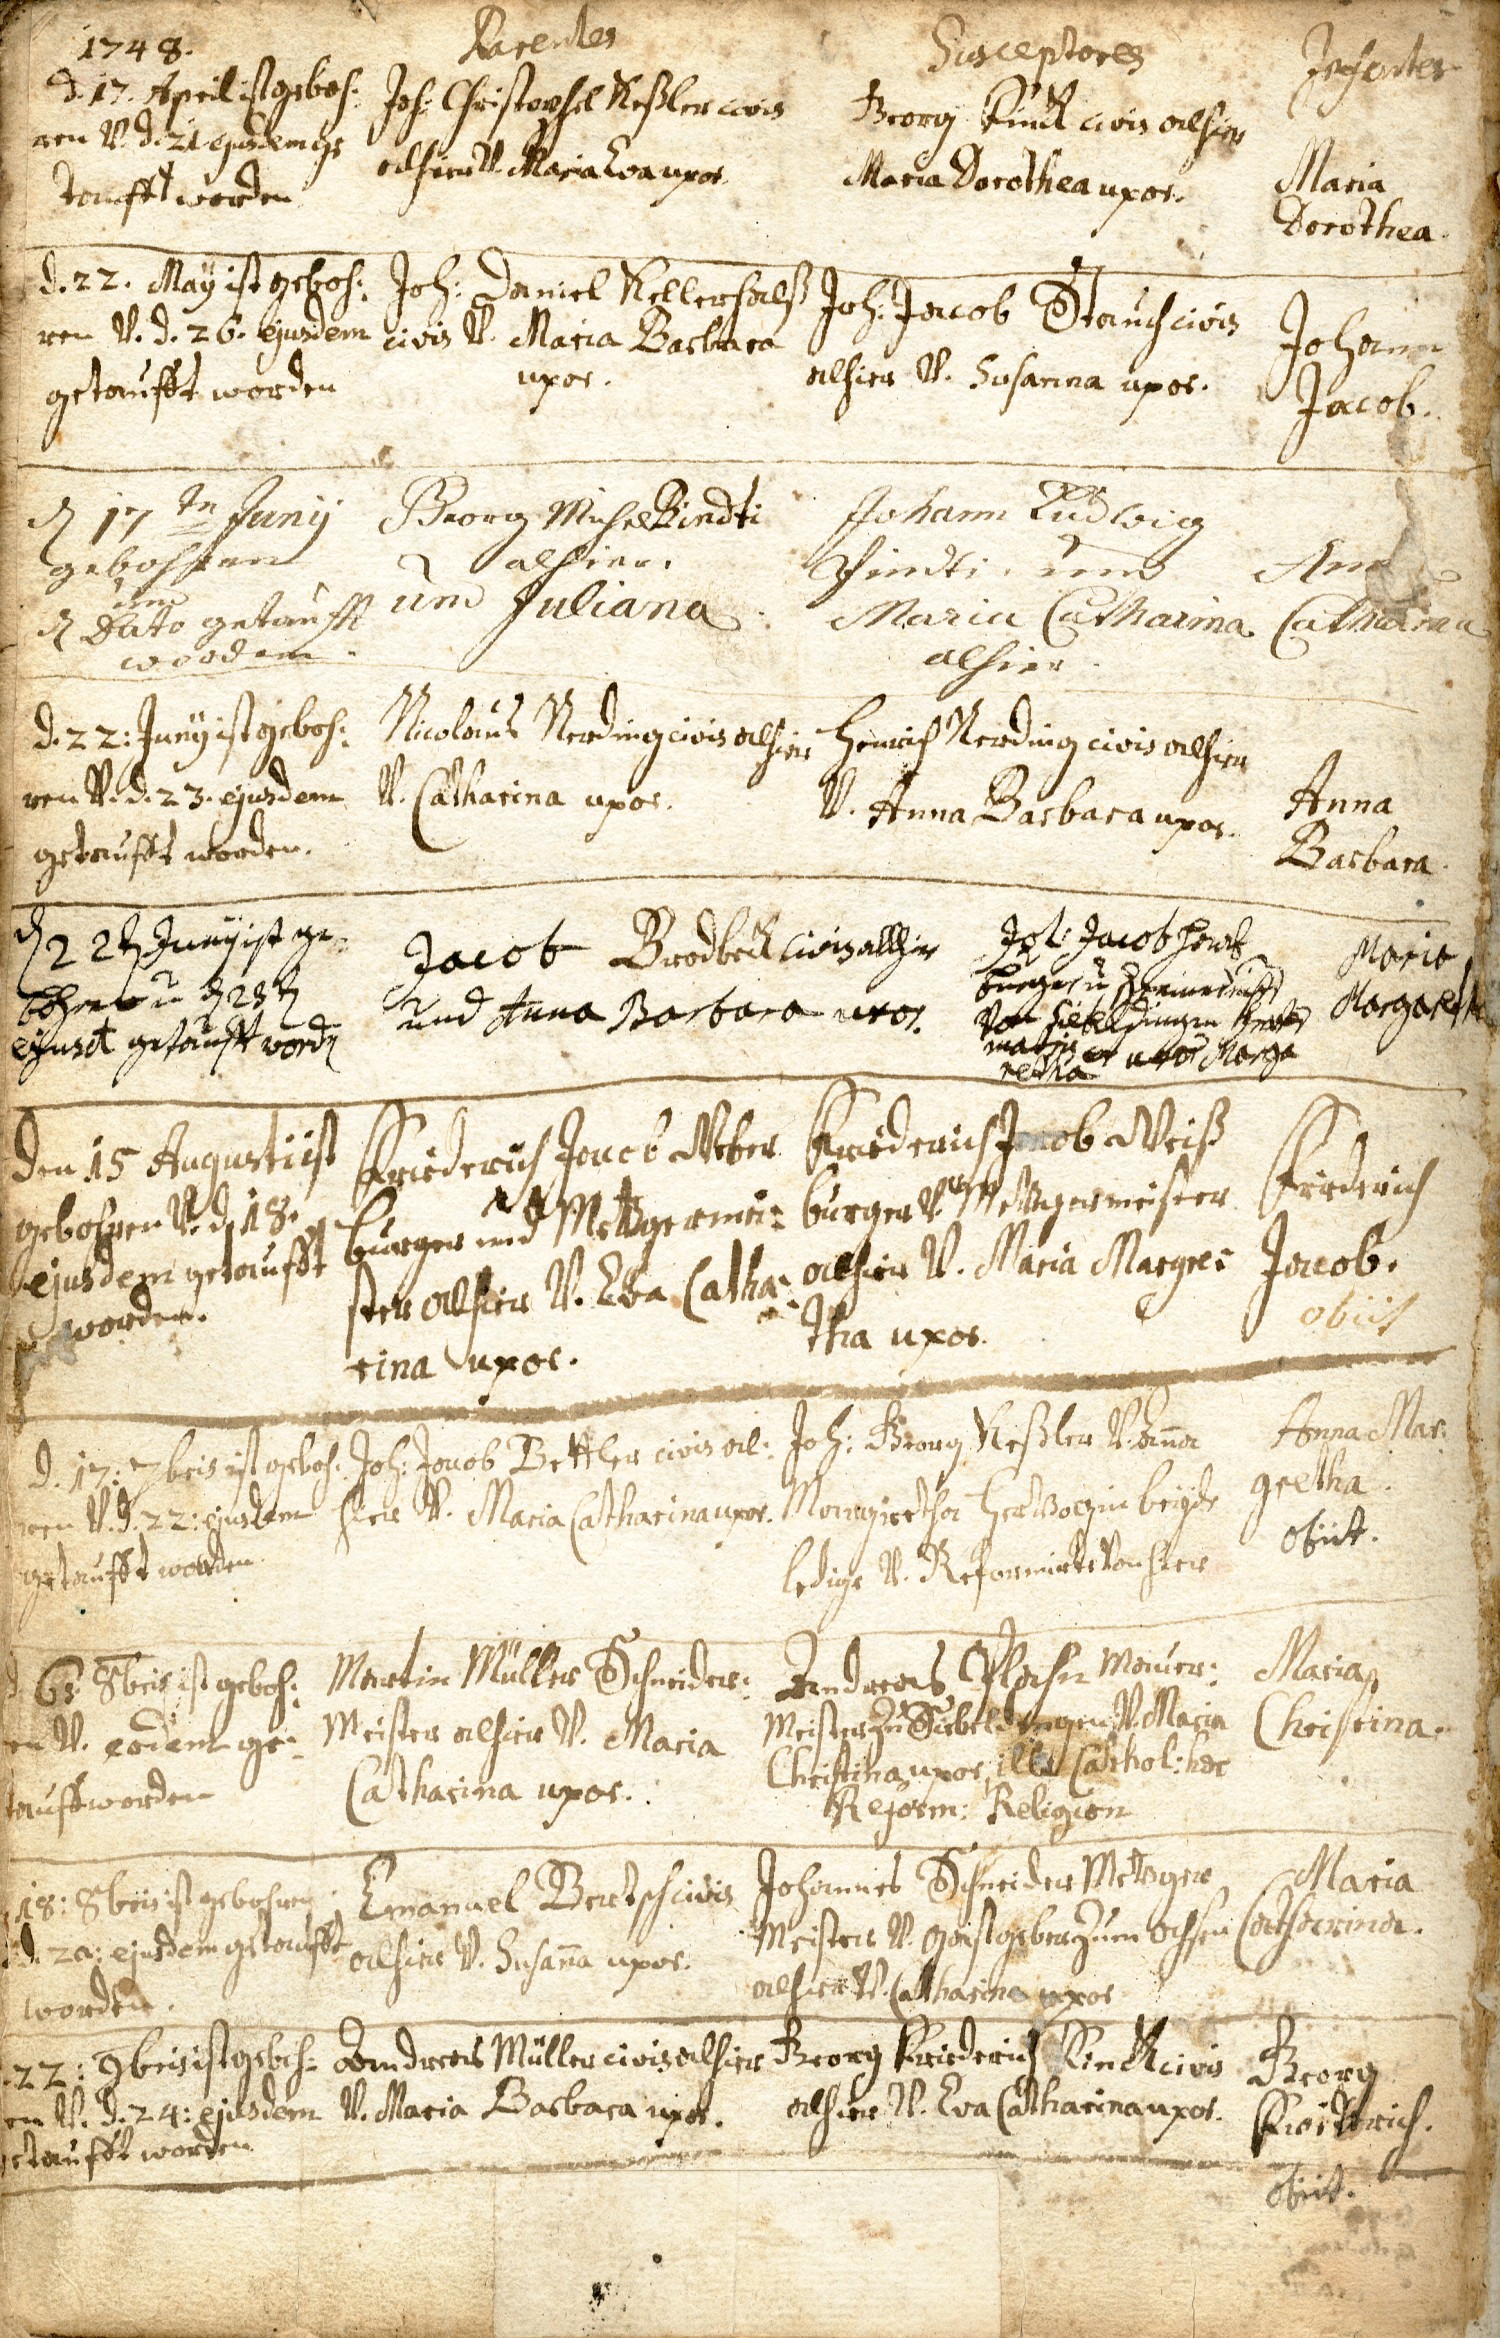 1748.
Parentes
Susceptores
Infantes
d. 17. April ist geboh:
ren V. d. 21 ejusdem ge
taufft worden
Joh: Christophel Keßler civis
alhier V. Maria Eva uxor.
Georg Kinck civis alhier
Maria Dorothea uxor.
Maria
Dorothea.
d. 22. May ist geboh:
ren V. d. 26. ejusdem
getaufft worden
Joh: Daniel Kellerhalß
civis V. Maria Barbara
uxor.
Joh: Jacob Strauch civis
alhier V. Susanna uxor.
Johann
Jacob.
d 17 tn Junij
gebohren
und
d Dato getaufft
worden.
Georg Michel
alhier.
und Juliana.
Johann Ludwig
und
Maria Catharina
alhier.
Catharina
d. 22: Junij ist geboh:
ren V. d. 23. ejusdem
getaufft worden.
Nicolaus Nerding civis alhier
V. Catharina uxor.
Henrich Nerding civis alhier
V. Anna Barbara uxor.
Anna
Barbara.
Junij ist ge-
getaufft word
Jacob Brodbeck civis allhier
und Anna Barbara uxor.
Joh: Jacob
burger u
von Siebeldingen
uxor Marga
retha
Maria
Margaretha
den 15 Augusti ist
gebohren V. d. 18.
ejusdem getaufft
worden.
Friederich Jacob Weber
burger und Metzgermei:
ster alhier V. Eva Catha:
rina uxor.
Friederich Jacob Weiß
burger V. Metzgermeister
alhier V. Maria Margre:
tha uxor.
Friderich
Jacob.
obiit
d. 17: 7bris ist geboh:
ren V. d. 22: ejusdem
getaufft worden
Joh: Jacob Bettler civis al:
hier V. Maria Catharina uxor.
Joh: Georg Keßler V. Anna
Margretha Hertzogin beyde
ledige V. Reformirte von hier
Anna Mar:
gretha.
obiit.
6: 8bris ist geboh:
en V. eodem ge:
taufft worden
Martin Müller Schneider:
Meister alhier V. Maria
Catharina uxor.
Andreas Maurer:
Meister zu Siebeldingen V. Maria
Christina uxor, ille Cathol: hæc
Reform: Religion
Maria
Christina.
18: 8bris ist gebohren
d. 20: ejusdem getaufft
worden.
Emanuel Bertsch civis
alhier V. Susana uxor.
Johannes Schneider Metzger
Meister V. gastgeber zum ochsen
alhier V. Catharina uxor
Maria
Catharina.
22: 9bris ist geboh:
en V. d. 24: ejusdem
getaufft worden
Andreas Müller civis alhier
V. Maria Barbara uxor.
Georg Friederich Kinck civis
alhier V. Eva Catharina uxor.
Georg
Friderich.
obiit.